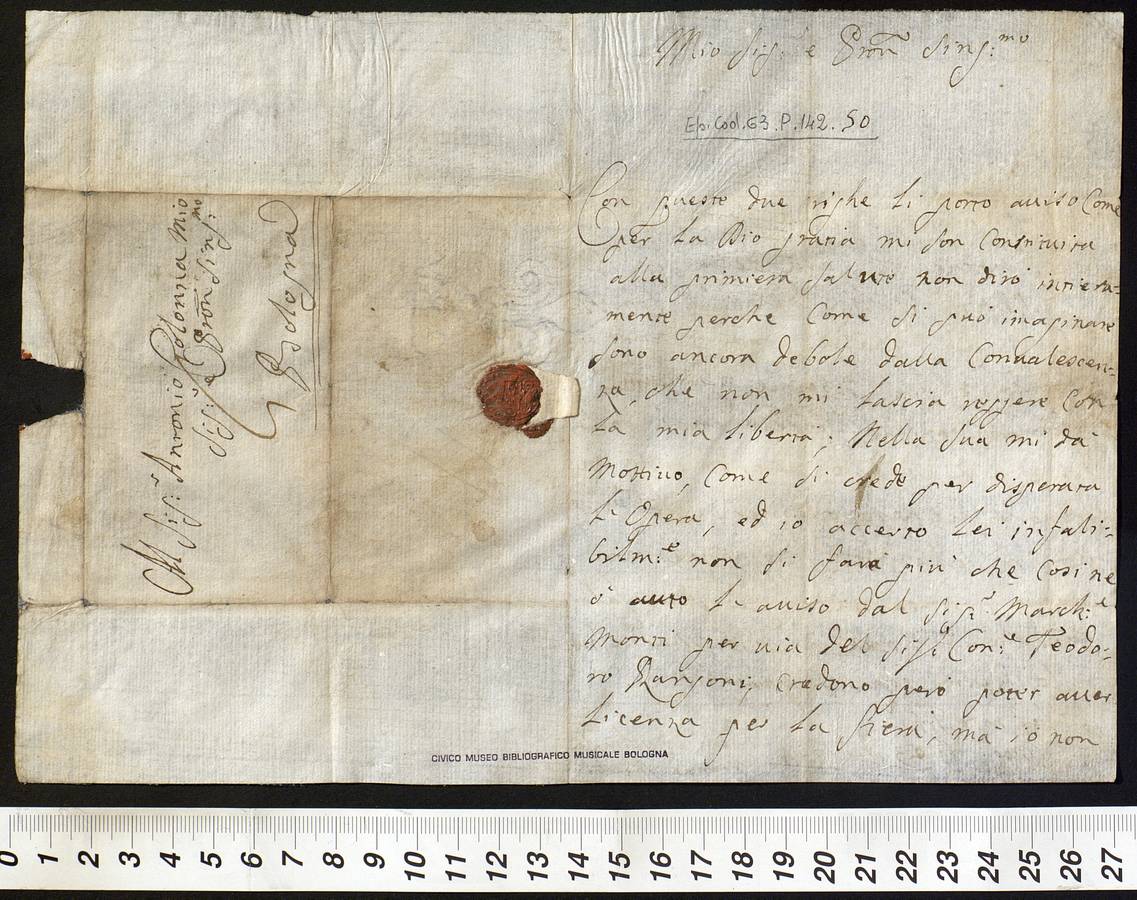 Mio Sig:r e Pron Sing:mo
Ep. Cod. 63. P. 142. 50
Con queste due righe li porto auiso Come
per La Dio gratia mi son Constituita
alla primiera salute non dirò intiera=
mente perche Come si può imaginare
sono ancora debole dalla Conualescen=
za, che non mi lascia reggere Con
La mia libertà; Nella sua mi dà
Mottiuo, Come si crede per disperata
L'Opera, ed io accerto Lei infali=
bilm:e non si farà più che Così ne
ò auto L'auiso dal Sig:r March:e
Monti per uia del Sig:r Con:e Teodo=
ro Rangoni; credono però poter auer
Licenza per la fiera, mà io non
Al Sig:r Antonio Colonna Mio
Sig:r e Pron Sing:mo
Bologna
CIVICO MUSEO BIBLIOGRAFICO MUSICALE BOLOGNA
0 1 2 3 4 5 6 7 8 9 10 11 12 13 14 15 16 17 18 19 20 21 22 23 24 25 26 27